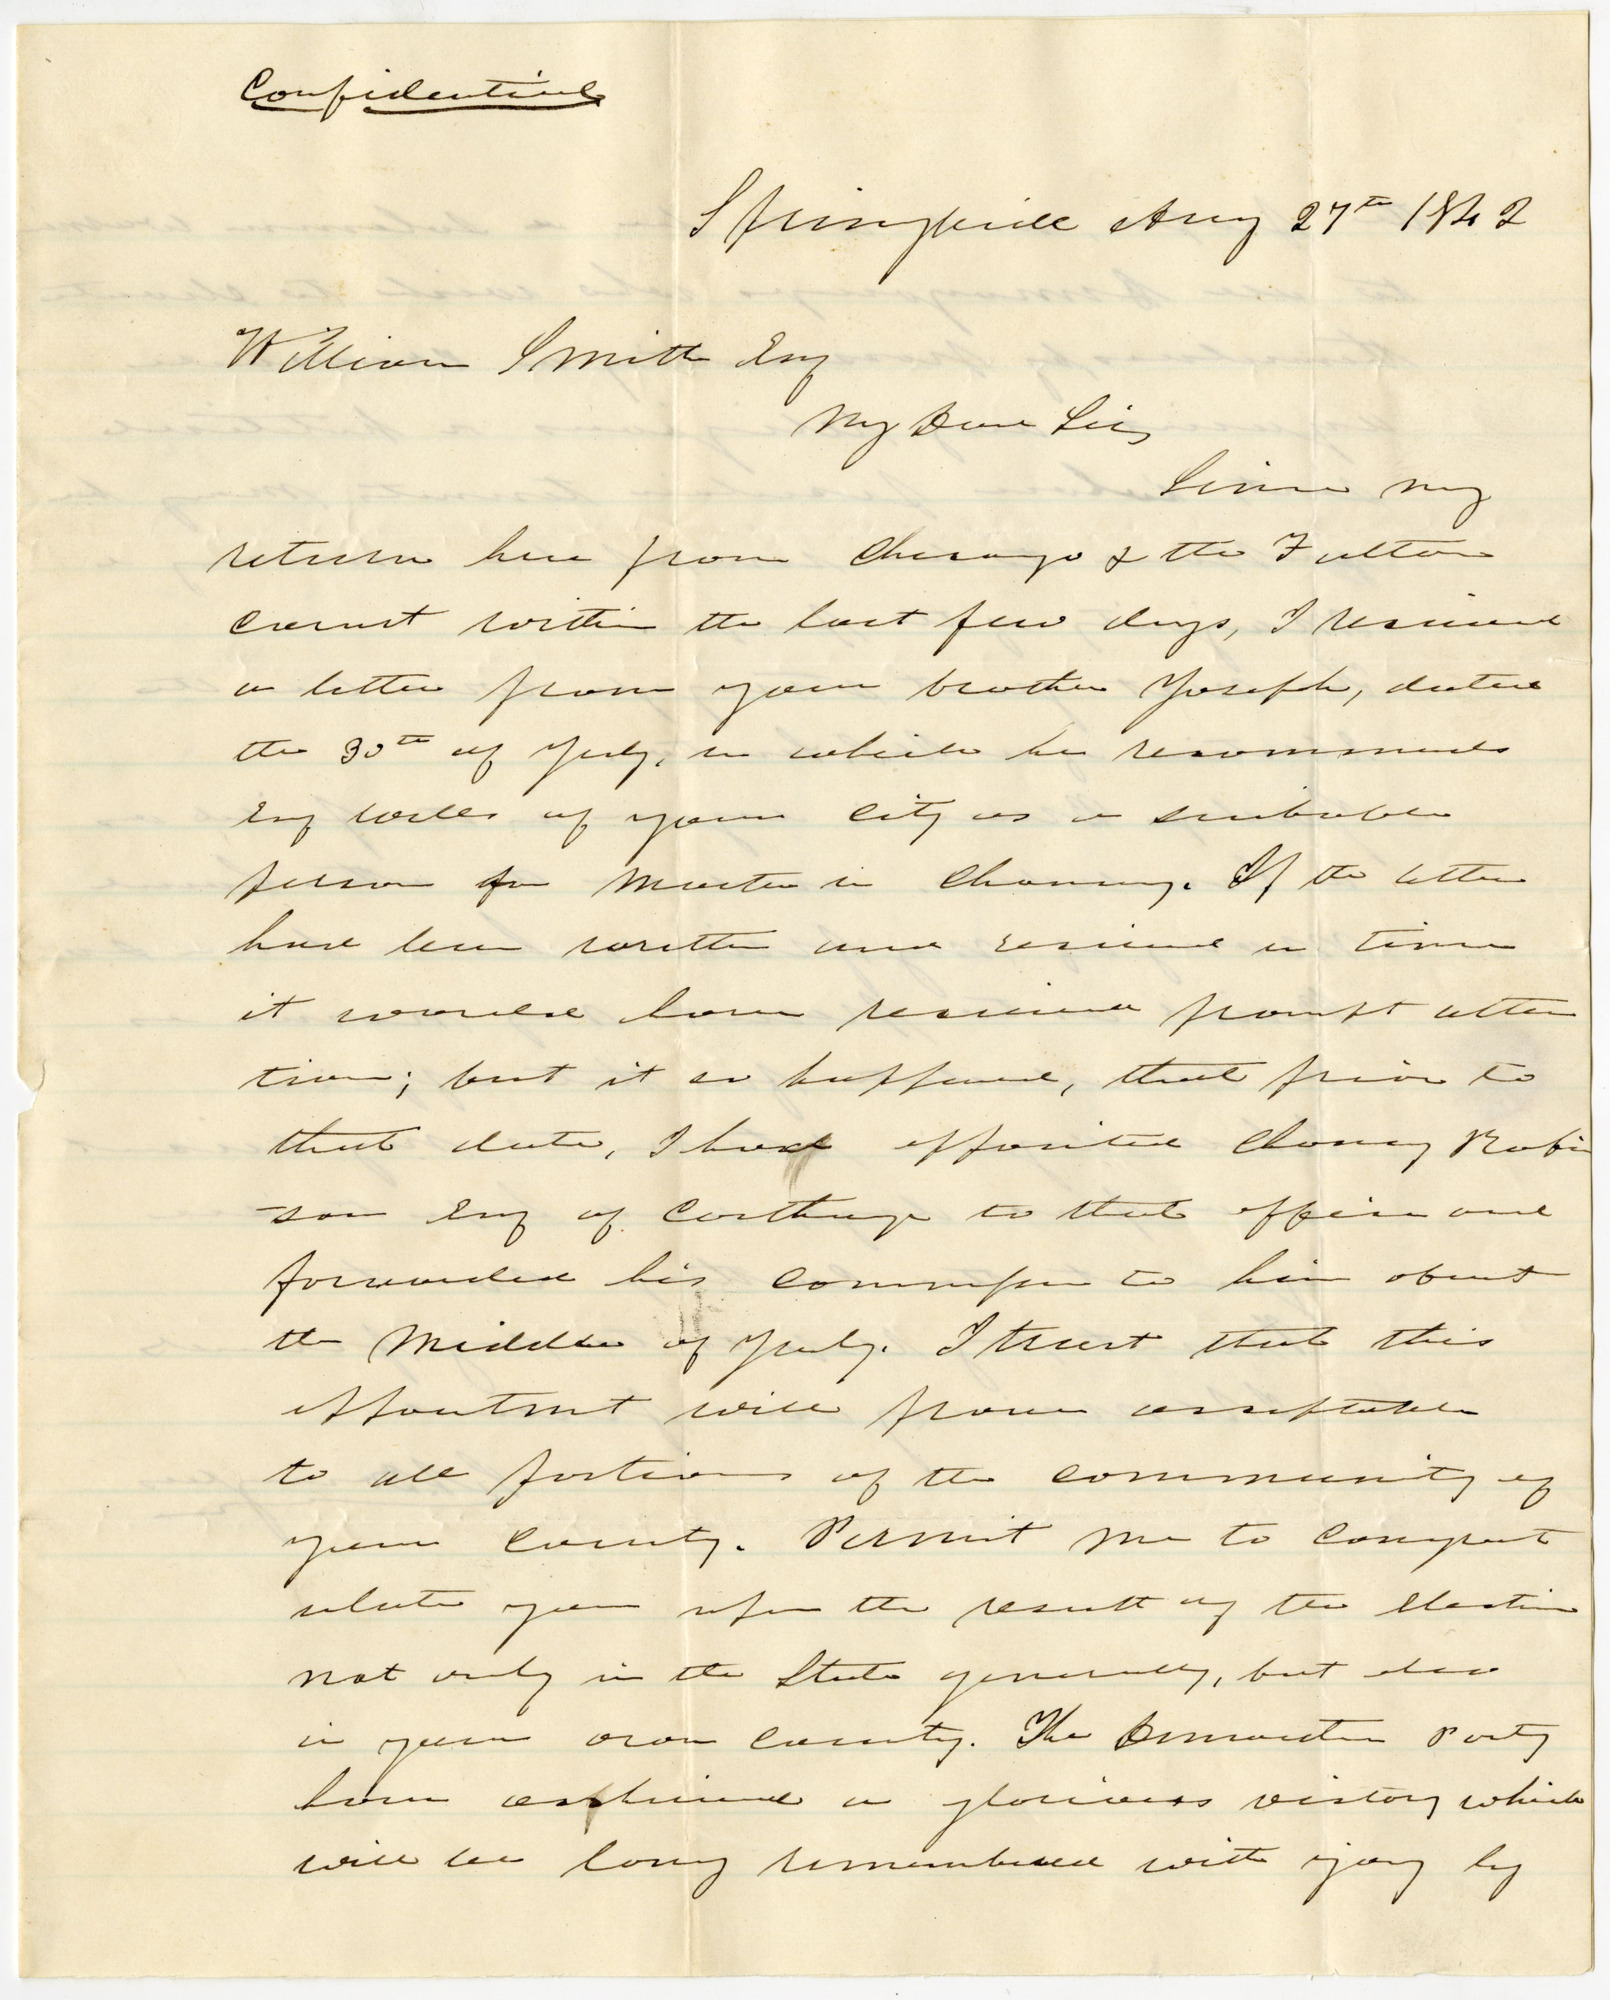 Confidential
Springfield Aug 27th 1842
William Smith Esq
My Dear Sir,
Since my
return here from Chicago & the Fulton
Court within the last few days, I received
a letter from your brother Joseph, dated
the 30th of July, in which he recommends
Esq Wells of your City as a suitable
person for Master in Chancery. If the letter
had been written and received in time
it would have received prompt atten
tion; but it so happened, that prior to
that date, I had appointed Chancy Robin
-son Esq of Carthage to that office and
forwarded his commission to him about
the Middle of July. I trust that this
appointment will prove acceptable
to all portions of the community of
your County. Permit me to congrat
ulate you upon the result of the election
not only in the State generally, but also
in your own County. The Democratic Party
have achieved a glorious victory which
will be long remembered with joy by